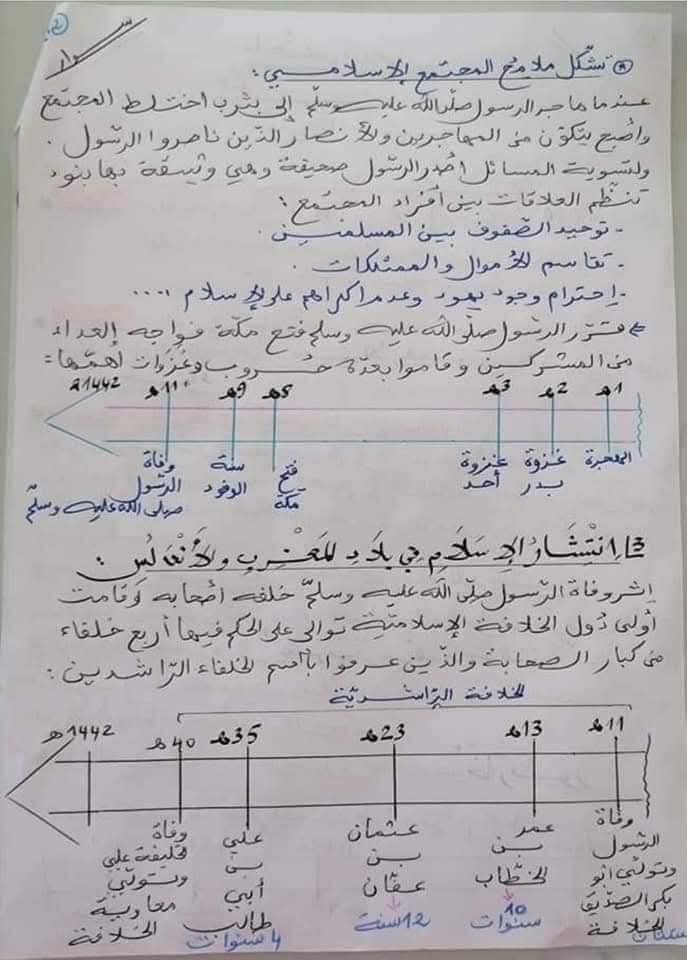 ② تشكل ملامح المجتمع الإسلامي :
عندما هاجر الرسول صلّى الله عليه وسلّم إلى يثرب اختلط المجتمع
وأصبح يتكوّن من المهاجرين والأنصار الذين ناصروا الرسول .
ولتسوية المسائل أصدر الرسول صحيفة وهي وثيقة بها بنود
تنظّم العلاقات بين أفراد المجتمع :
- توحيد الصّفوف بين المسلمين .
- تقاسم الأموال والممتلكات
- إحترام وجود يهود وعدم اكراههم على الإسلام ....
قرّر الرسول صلّى الله عليه وسلم فتح مكّة فواجه العداء
من المشركين وقاموا بعدّة حروب وغزوات أهمّها :
1هـ 2هـ 3هـ 8هـ 9هـ 11هـ 1442هـ
الهجرة غزوة بدر غزوة أحد فتح مكة سنة الوفود وفاة الرّسول صلى الله عليه وسلّم
3/ إنْتِشَارُ الإِسْلَامِ فِي بِلَادِ المَغْرِبِ والأَنْدَلُسِ :
إثر وفاة الرّسول صلّى الله عليه وسلّم خلفه أصحابه وقامت
أولى دُول الخلافة الإسلاميّة توالى على الحكم فيها أربع خلفاء
من كبار الصحابة والذّين عرفوا باسم الخلفاء الرّاشدين :
الخلافة الرّاشديّة
11هـ 13هـ 23هـ 35هـ 40هـ 1442هـ
وفاة الرسول وتولّي أبو بكر الصدّيق الخلافة
عمر بن الخطّاب
عثمان بن عفّان
علي بن أبي طالب
وفاة الخليفة علي وتولّي معاوية الخلافة
سنتان 10 سنوات 12 سنة 4 سنوات